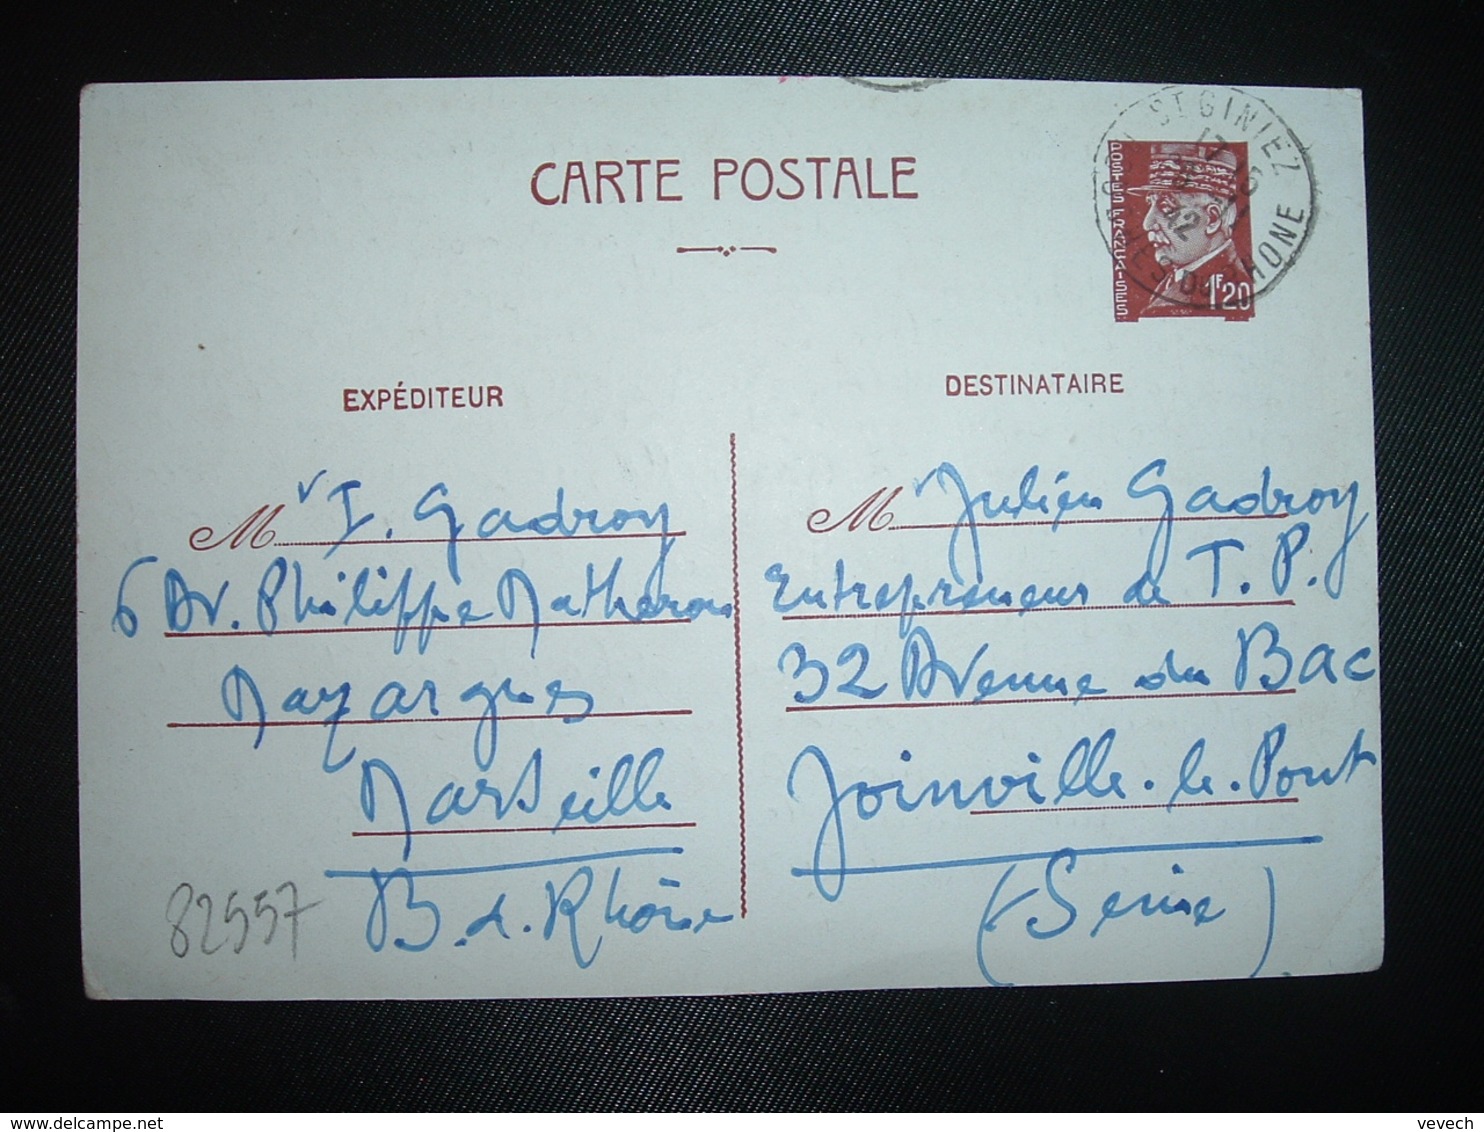 CARTE POSTALE
ST GINIEZ
17 16
42
BCHES DU RHONE
POSTES FRANCAISES
1F20
EXPÉDITEUR
Mr I. Gadroy
6 Av. Philippe Matheron
Mazargues
Marseille
B. d. Rhône
82557
DESTINATAIRE
Mr Julien Gadroy
Entrepreneur de T.P.
32 Avenue du Bac
Joinville-le-Pont
(Seine)
delcampe.net
vevech